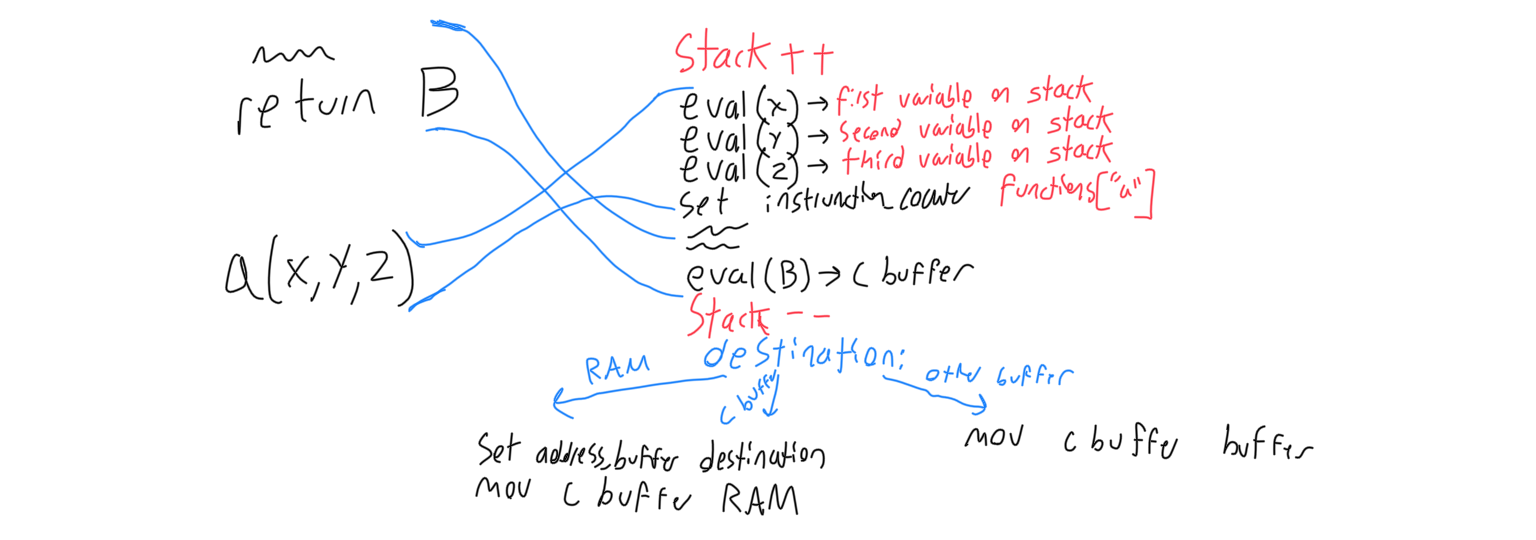 return B
a(x,y,z)
Stack ++
eval(x) → first variable on stack
eval(y) → second variable on stack
eval(z) → third variable on stack
set instrunction counter functions["a"]
eval(B) → C buffer
Stack --
destination:
RAM
C buffer
other buffer
Set address_buffer destination
mov C buffer RAM
mov C buffer buffer